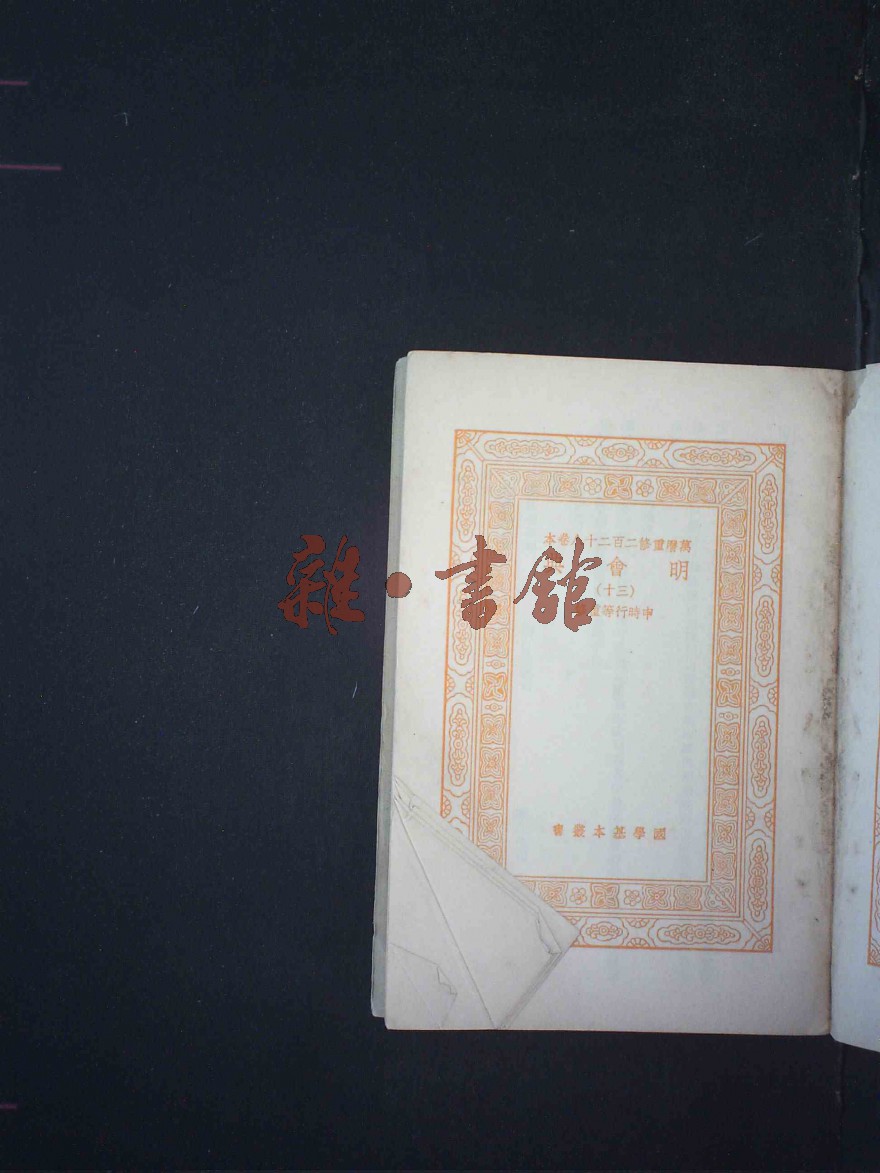 萬曆重修二百二十八卷本
明會
(三十)
申時行等
國學基本叢書
雜·書館